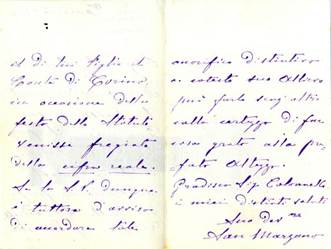 el di lui figlio il
Conte di Torino,
in occasione della
festa dello Statuto
venisse fregiato
della cifra reale.
Se la S. V. dunque
è tuttora d'avviso
di accordare tale
onorifico distintivo
a cotesto suo Allievo
può farlo senz'altro
colla certezza di far
cosa grata alla pre-
fata Altezza.
Gradisca Sig.
i miei distinti saluti
Suo Dev.mo
San Marzano